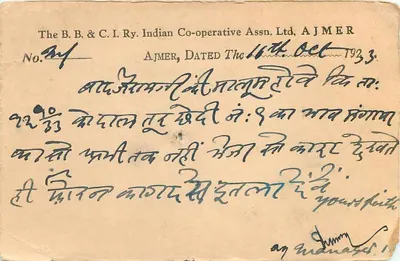 The B. B. & C. I. Ry. Indian Co-operative Assn. Ltd. AJMER
No. AJMER, DATED The 16th Oct 1933.
बाद जैरामजी की मालूम होवे कि ता:
को दाल तूर छेदी नं: १ का भाव मंगाया
था सो अभी तक नहीं भेजा सो कारड देखते
ही फौरन कागद से इतला दें
yours faith
Manager